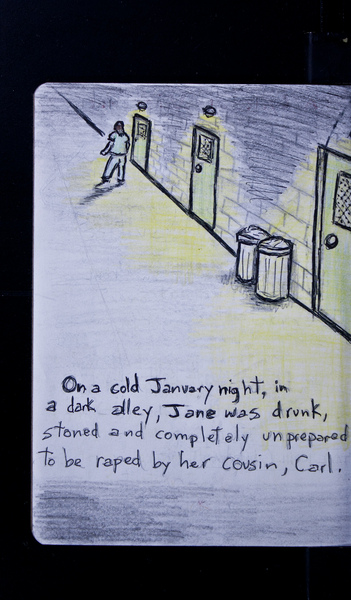 On a cold January night, in
a dark alley, Jane was drunk,
stoned and completely unprepared
to be raped by her cousin, Carl.